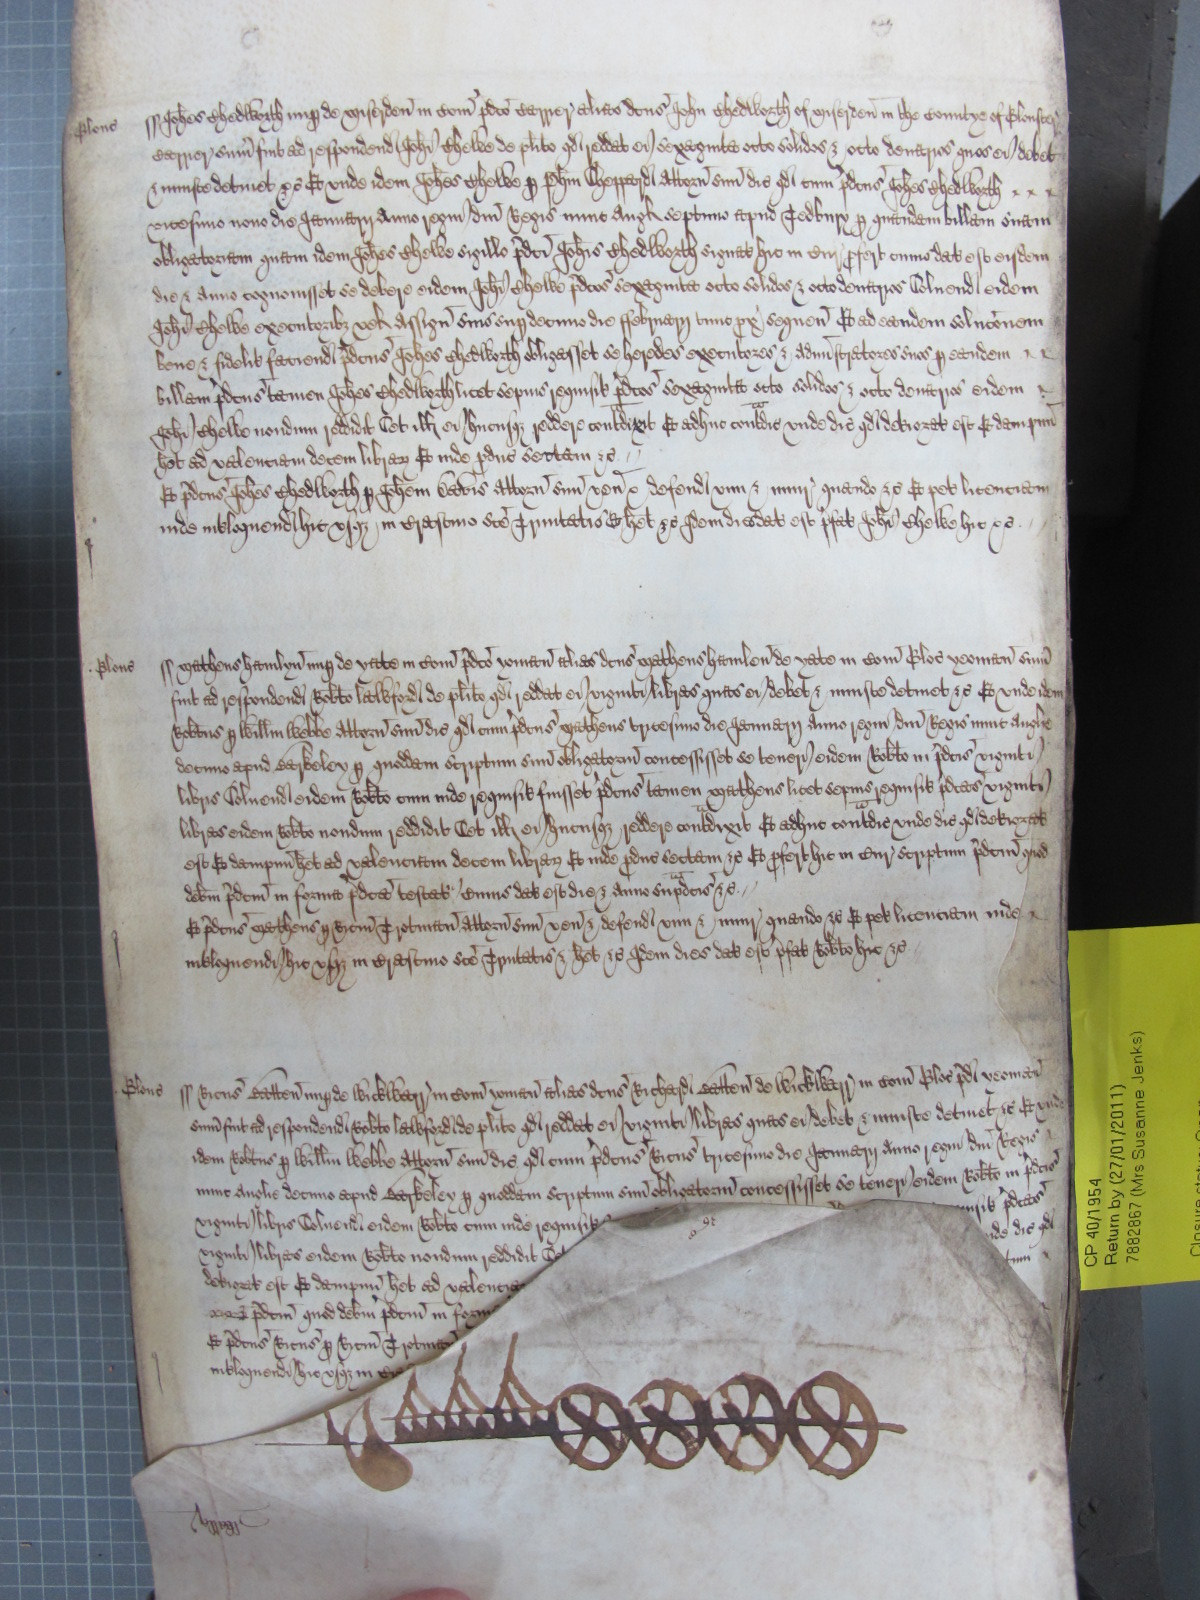 Glouc
Joh̃es Chedworth nup de Miserden̄ in Com̄ p̄dc̄o Carrier alias dc̄us John Chedworth of Miserden̄ in the Countye of Glouceſtr̄
Carrier sum̄ fuit ad respondend Joh̃i Chelwe de pl̄ito qd reddat ei sexaginta octo solidos & octo denarios quos ei debet
& iniuste detinet &c Et unde idem Joh̃es Chelwe p Ph̃m Cheppard Attorn̄ suū dic̄ qd cum p̄dc̄us Joh̃es Chedworth
vicesimo nono die Januarij Anno regni dn̄i Regis nunc Angl̄ septimo apud Tedbury p quandam billam suam
obligatoriam quam idem Joh̃es Chelwe sigillo p̄dc̄i Joh̃is Chedworth signat̄ hic in Cur̄ profert cuius dat̄ est eisdem
die & Anno cognovisset se debere eidem Joh̃i Chelwe p̄dc̄os sexaginta octo solidos & octo denarios Solvend eidem
Joh̃i Chelwe executoribȝ vel Assign̄ suis sup decimo die ffebruarij tunc prox̄ sequen̄ Et ad eandem soluc̄onem
bene & fidelit̄ faciend p̄dc̄us Joh̃es Chedworth obligasset se heredes executores & administratores suos p eandem
billam p̄dc̄us tamen Joh̃es Chedworth licet sepius requisit̄ p̄dc̄os sexaginta octo solidos & octo denarios eidem
Joh̃i Chelwe nondum reddidit Set ill̄ ei hucusqȝ reddere contradixit Et adhuc contradic̄ unde dic̄ qd deteriorat̄ est Et dampnū
het ad valenciam decem librar̄ Et inde produc̄ sectam &c
Et p̄dc̄us Joh̃es Chedworth p Joh̃em Attorn̄ suū ven̄ & defend vim & iniur̄ quando &c Et pet̄ licenciam
inde int̄loquend hic usqȝ in Crastino Sc̄e Trinitatis Et het &c Idem dies dat̄ est p̄fat̄ Joh̃i Chelwe hic &c
Glouc
Matheus hamlyn̄ nup de Yate in Com̄ p̄dc̄o yoman̄ alias dc̄us Matheus hamlen̄ de yate in Com̄ Glouc yeoman̄ sum̄
fuit ad respondend Rob̄to Walkford de pl̄ito qd reddat ei viginti libras quas ei debet & iniuste detinet &c Et unde idem
Rob̄tus p Will̄m Webbe Attorn̄ suū dic̄ qd cum p̄dc̄us Matheus tricesimo die Januarij Anno regni dn̄i Regis nunc Anglie
decimo apud Barkeley p quoddam scriptum suū obligatoriū concessisset se teneri eidem Rob̄to in p̄dc̄is viginti
libris Solvend eidem Rob̄to cum inde requisit̄ fuisset p̄dc̄us tamen Matheus licet sepius requisit̄ p̄dc̄as viginti
libras eidem Rob̄to nondum reddidit Set ill̄ ei hucusqȝ reddere contradixit Et adhuc contradic̄ unde dic̄ qd deteriorat̄
est Et dampnū het ad valenciam decem librar̄ Et inde produc̄ sectam &c Et profert hic in Cur̄ scriptum p̄dc̄m quod
debm̄ p̄dc̄m in forma p̄dc̄a testat̄ Cuius dat̄ est die & Anno sup̄adc̄is &c
Et p̄dc̄us Matheus p Ric̄m Trotman̄ Attorn̄ suū ven̄ & defend vim & iniur̄ quando &c Et pet̄ licenciam inde
int̄loquendi hic usqȝ in Crastino Sc̄e Trinitatis & het &c Idem dies dat̄ est p̄fat̄ Rob̄to hic &c
Glouc
Ric̄us Batten̄ nup de Wickwarr in Com̄ yoman̄ alias dc̄us Richard Batten̄ de Wickwarr in Com̄ Glouc p̄d yeoman̄
sum̄ fuit ad respondend Rob̄to Walkford de pl̄ito qd reddat ei viginti libras quas ei debet & iniuste detinet &c Et unde
idem Rob̄tus p Will̄m Webbe Attorn̄ suū dic̄ qd cum p̄dc̄us Ric̄us tricesimo die Januarij Anno regni dn̄i Regis
nunc Anglie decimo apud Barkeley p quoddam scriptum suū obligatoriū concessisset se teneri eidem Rob̄to in p̄dc̄is
viginti libris Solvend eidem Rob̄to cum inde requisit̄ p̄dc̄as
viginti libras eidem Rob̄to nondum reddidit Set unde dic̄ qd
deteriorat̄ est Et dampnū het ad valenciam
p̄dc̄m quod debm̄ p̄dc̄m in forma
Et p̄dc̄us Ric̄us p Ric̄m Trotman̄
int̄loquendi hic usqȝ in Cras
CP 40/1954
Return by (27/01/2011)
7882867 (Mrs Susanne Jenks)